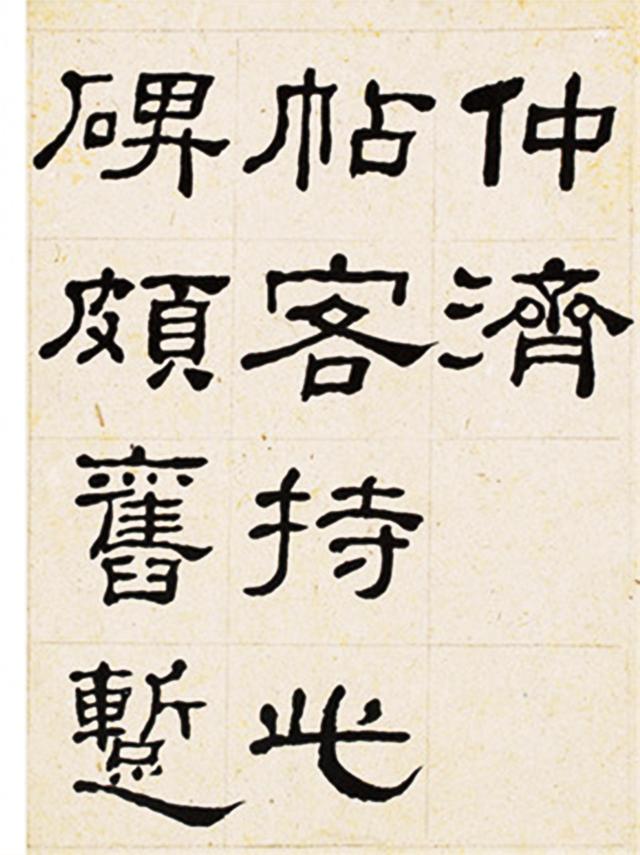 仲濟
帖客持此
碑頗舊蹔